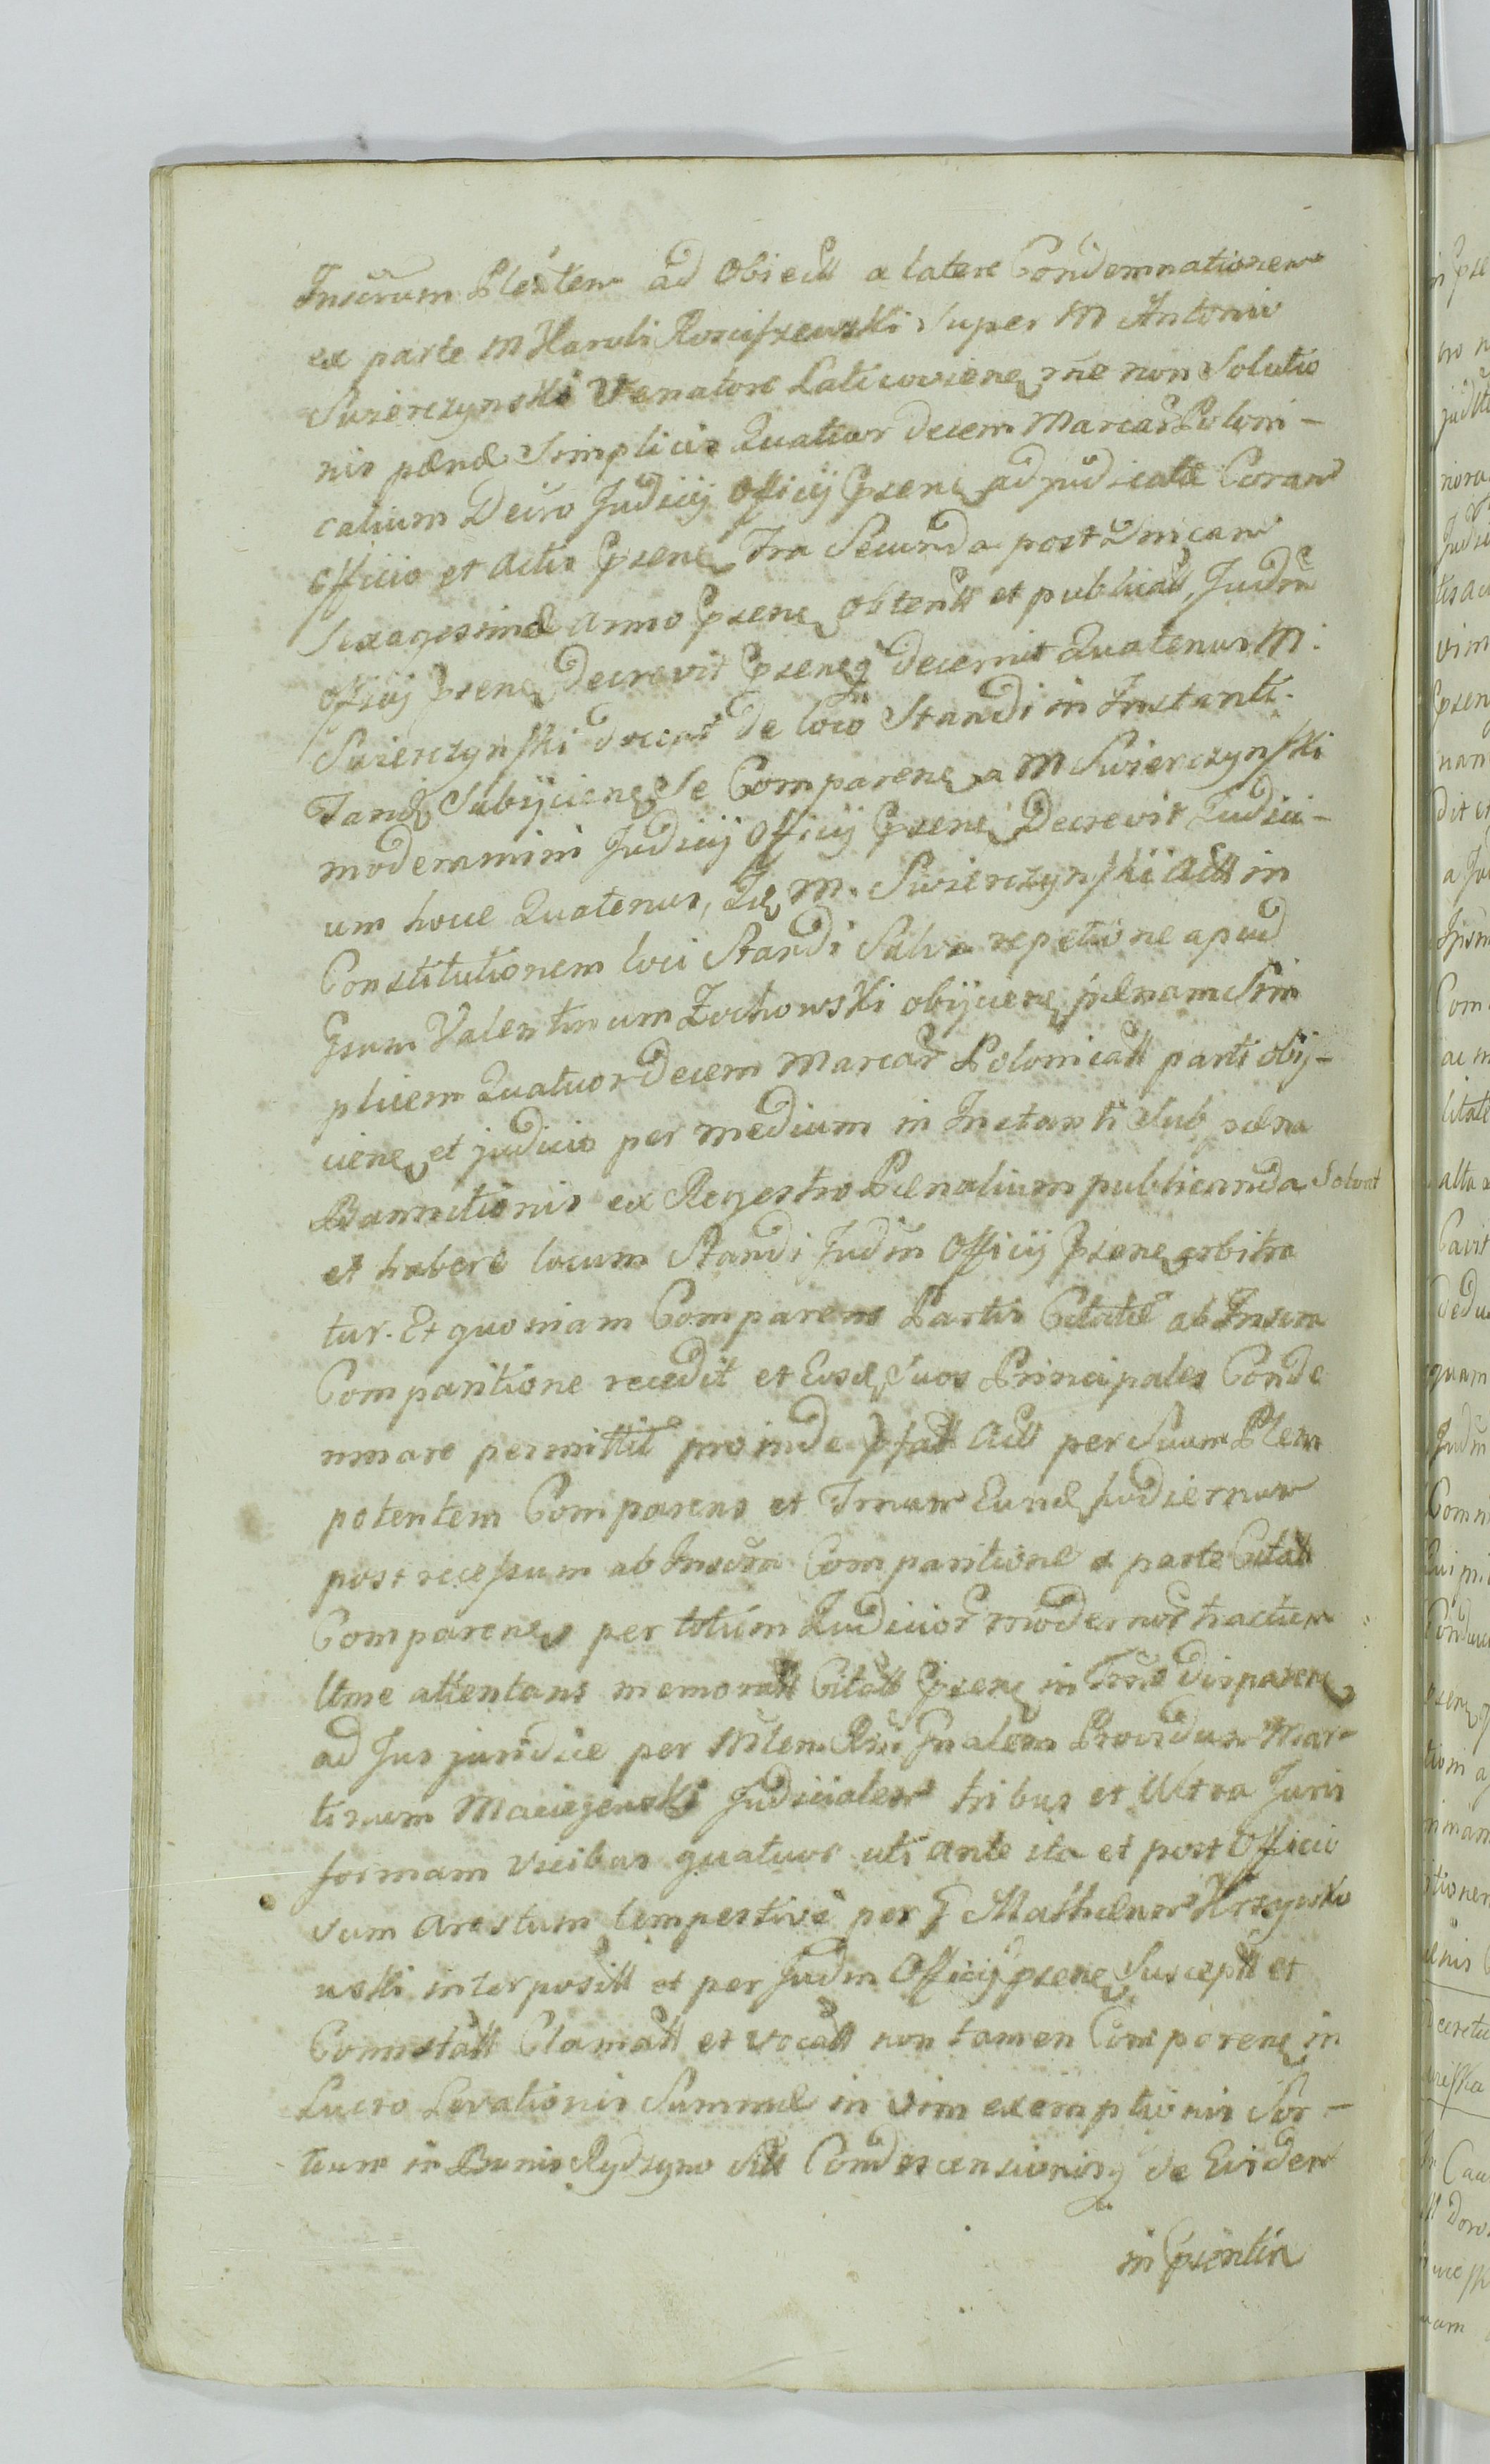 Inscrum Plenten ad Obiectt a latere Condemnationem
ex parte M Karoli Rosciszewski Super M Antonio
Swierczynski Venatore Laticoviene rne non Solutio
nis pænæ Simplicis Quatuor decem Marcar Poloni-
calium Decro Judicij Officij Psene adjudicatæ Coram
Officio et Actis Psene Fra Secunda post Dnicam
Sexagesimæ Anno Psene obtentt et publicatt, Judm
Officij Psene Decrevit Pseneq decernit Quatenus M.
Swierczynski doceat de loco Standi in Instanti.
Tand Subijciene Se Comparene a M Swierczynski
moderamini Judicij Officij Psene Decrevit Judici-
um hocce Quatenus, M. Swierczynski Actt in
Constitutionem loci Standi Salva repetitione apud
Gsum Valentinum Zochowski obijciene pænam Sim
plicem Quatuordecem Marcar Polonicatt parti obij-
ciene et judicio per medium in Instanti Sub pæna
Bannitionis ex Regestro Pænalium publicanda Solvat
et habere locum Standi Judm Officij Psene arbitra
tur. Et quoniam Comparens Partis Citatæ ab Inscra
Comparitione recedit et Eosd Suos Principales Conde
mnare permittit proinde pfatt Actt per Suum Pleni
potentem Comparens et Trnum Eund hodiernum
post recessum ab Inscra Comparitione a parte Citatt
Comparene per totum Judicior modernor tractum
ltme attentans memoratt Citatt Psene in Trno disparene
ad Jus juridice per Mlem Rni Gnalem Providum Mar-
tinum Maciejewski Judicialem tribus et Ultra Juris
formam vicibus quatuor uti ante ita et post Officio
sum arestum tempestive per G Mathæum Krzywko
wski interpositt et per Judm Officij psene Susceptt et
Connotatt Clamatt et vocatt non tamen Comparene in
Lucro Levationis Summæ in vim exemptionis Sor-
tium in Bonis Rydzyno Sitt Condescensionisq de Eisdem
in Psentia